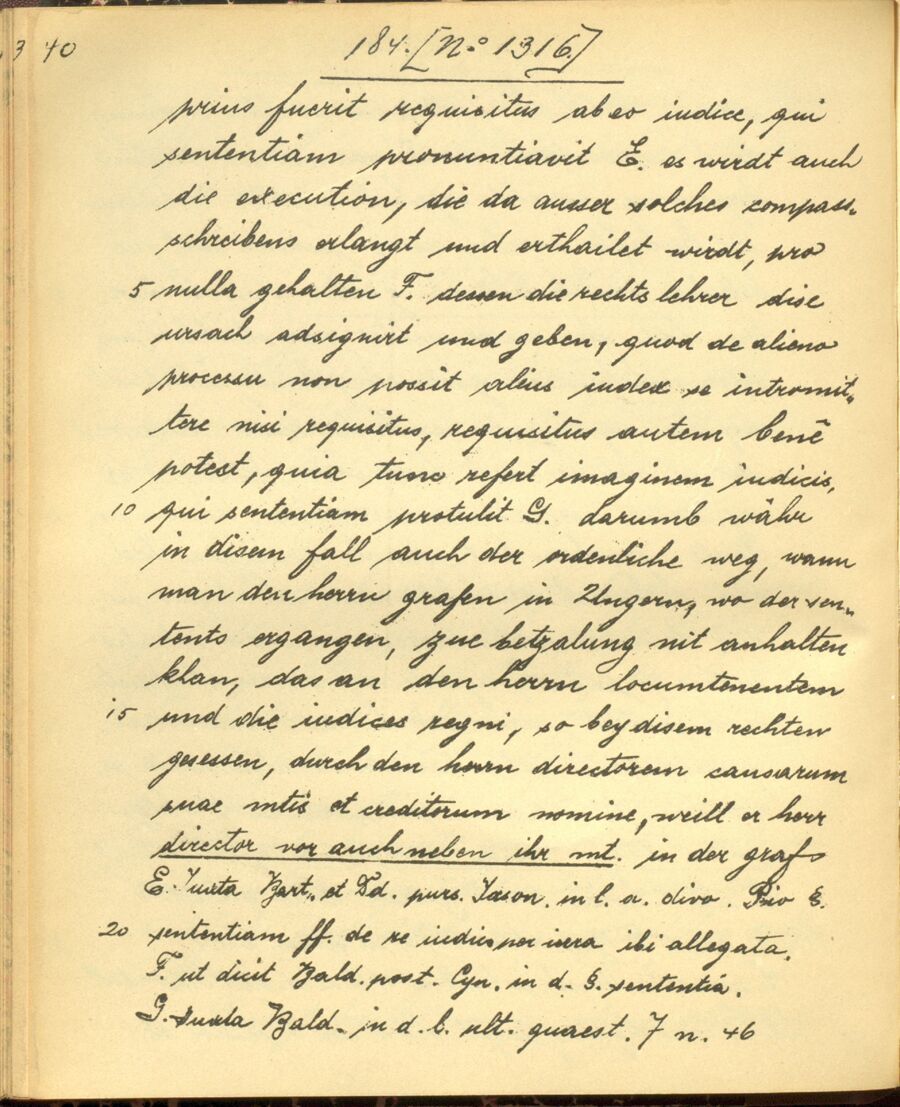 3 40
184. [No 1316.]
prius fuerit requisitus ab eo iudice, qui
sententiam pronuntiavit E. es wirdt auch
die execution, die da ausser solches compass„
schreibens erlangt und erthailet wirdt, pro
5 nulla gehalten F. dessen die rechtslehrer dise
ursach adsignirt und geben, quod de alieno
processu non possit alius iudex se intromit„
tere nisi requisitus, requisitus autem benè
potest, quia tunc refert imaginem iudicis,
10 qui sententiam protulit G. darumb währ
in disem fall auch der ordenliche weg, wann
man den herrn grafen in Ungern, wo der sen„
tents ergangen, zue betzalung nit anhalten
khan, das an den herrn locumtenentem
15 und die iudices regni, so bey disem rechten
gesessen, durch den herrn directorem causarum
suae mtis et creditorum nomine, weill er herr
director vor auch neben ihr mt. in der grafs
E. Iuxta Bart. et Dd. purs. Jason. in l. a. divo. Pio §.
20 sententiam ff. de re iudic per iura ibi allegata.
F. ut dicit Bald. post. Cyn. in d. §. sententia.
G. Iuxta Bald. in d. l. ult. quaest. 7 n. 46